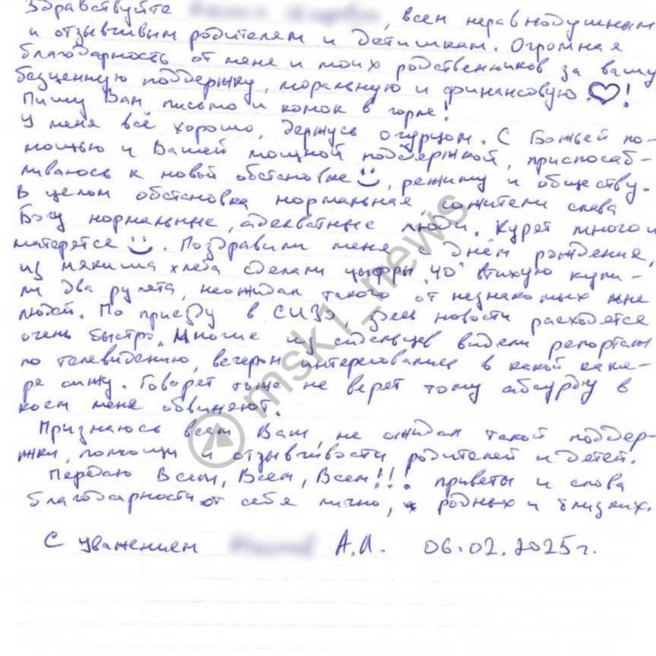 Здравствуйте , всем неравнодушным
и отзывчивым родителям и детишкам. Огромная
благодарность от меня и моих родственников за вашу
бесценную поддержку, моральную и финансовую ♡!
Пишу Вам письмо и комок в горле!
У меня всё хорошо, держусь огурцом. С Божьей по-
мощью и Вашей мощной поддержкой, приспосаб-
ливаюсь к новой обстановке, режиму и обществу.
В целом обстановка нормальная сожители слава
Богу нормальные, адекватные люди. Курят много и
матерятся. Поздравили меня с днём рождения,
из мякиша хлеба сделали цыфры "40" втихую купи-
ли два рулета, неожидал такого от незнакомых мне
людей. По приезду в СИЗО Всех новости расходятся
очень быстро. Многие из сидельцев видели репортаж
по телевидению, вечером интересовались в какой каме-
ре сижу. Говорят тоже не верят тому абсурду в
коем меня обвиняют.
Признаюсь всем Вам, не ожидал такой поддер-
жки, помощи и отзывчивости родителей и детей.
Передаю Всем, Всем, Всем!!! приветы и слова
благодарности от себя лично, родных и близких.
С уважением А.И. 06.02.2025г.
msk1_news